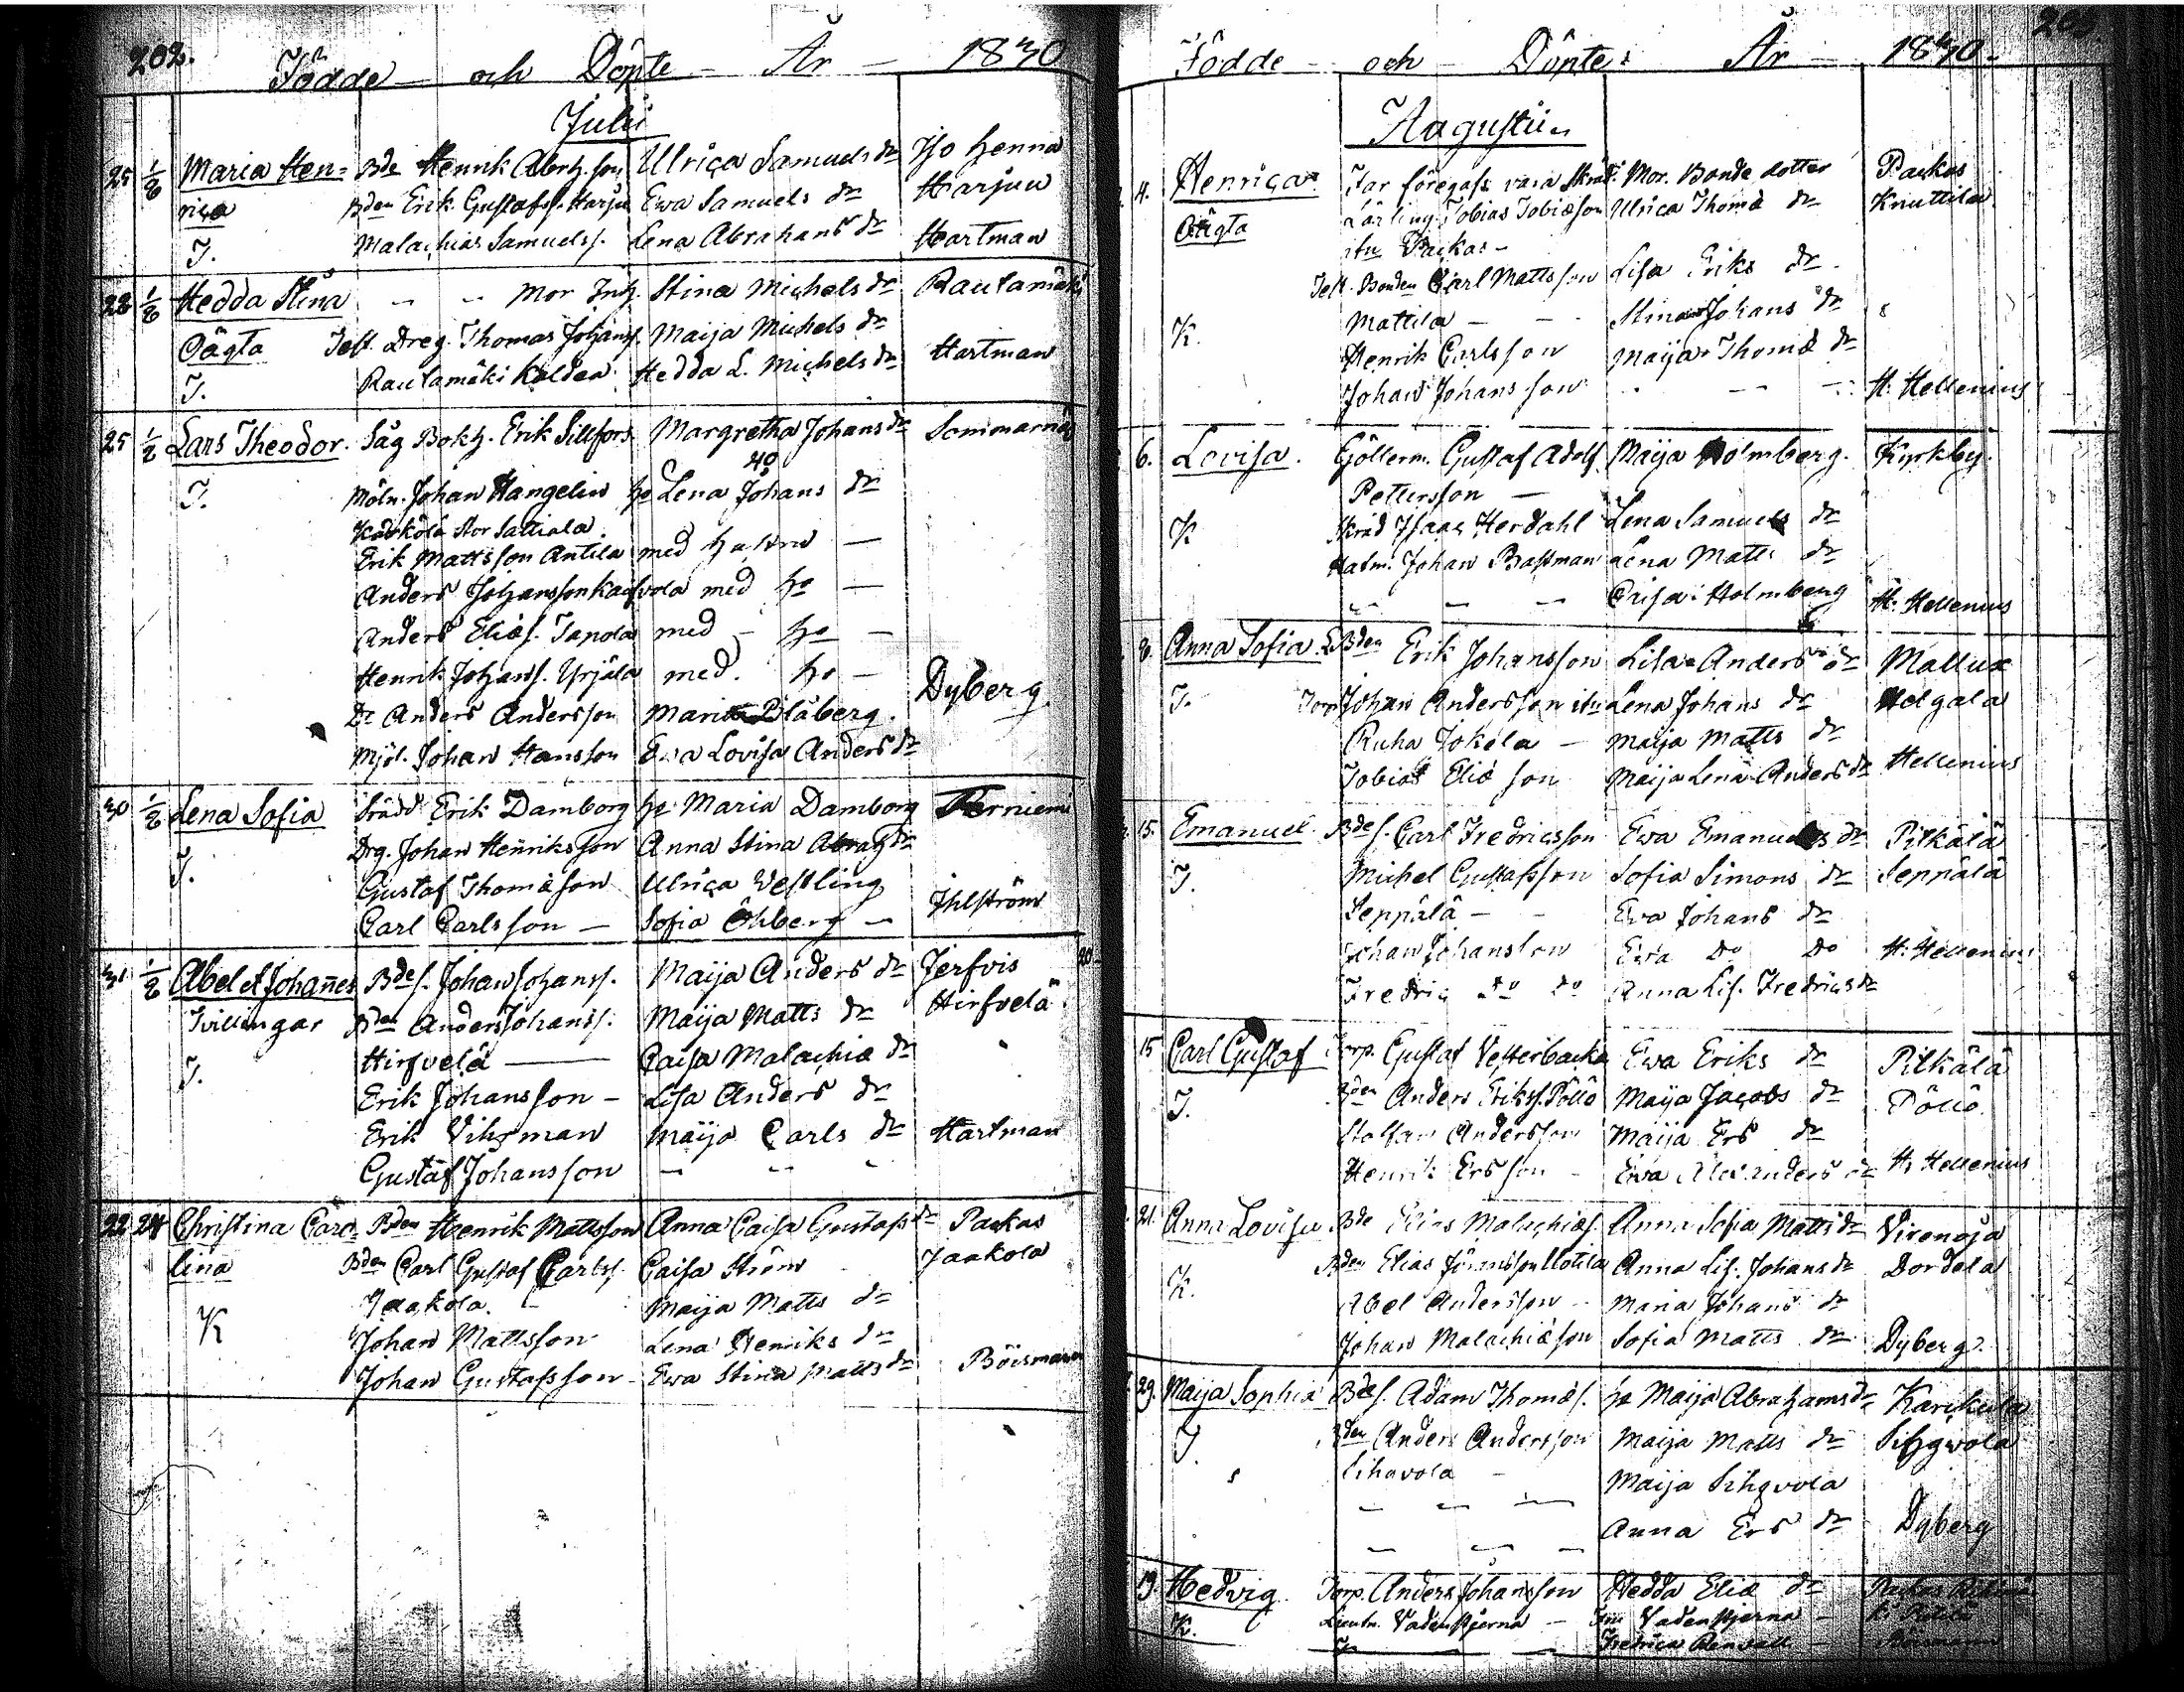 202.
Födde och Döpte År 1830
Julii
25 1/8 Maria Hen= Bde Henrik Abrh.son Ulrica Samuels dr Iso Henna
rica Bden Erik Gustafs. Harju Ewa Samuels dr Harjun
T. Malachias Samuelss. Lena Abrahams dr Hartman
28 1/8 Hedda Stina Mor Inh. Stina Michels dr Rautamäki
Oägta Test. Dreg. Thomas Johanss. Maija Michels dr
T. Rautamäki Hedda L. Michels dr Hartman
25 1/8 Lars Theodor. Såg Bokh. Erik Sillfors Margretha Johans dr Sommarnäs
40
T. Möln. Johan Hangelin ho Lena Johans dr
Stor Sattiala
Erik Mattsson Antila med hustru
Anders Johansson med ho
Anders Eliæs. Tapola med ho
Henrik Johanss. Yrjälä med ho
Dr Anders Andersson Maria Blåberg. Dyberg
Mjöl. Johan Hansson Ewa Lovisa Anders dr
30 1/8 Lena Sofia Erik Damborg ho Maria Damborg Terniemi
Drg. Johan Henriksson Anna Stina Abrah dr
T. Gustaf Thomæson Ulrica Vestling
Carl Carlsson Sofia Öhberg Ihlström
31 1/8 Abel et Johannes Bdes. Johan Johanss. Maija Anders dr Jerfvis
Tvillingar Bden Anders Johanss. Maija Matts dr Hirfvelä
T. Hirfvelä Caisa Malachiæ dr
Erik Johansson Lisa Anders dr
Erik Vihsman Maija Carls dr Hartman
Gustaf Johansson
22 24 Christina Caro= Bden Henrik Mattsson Anna Caisa Gustafs dr Paukas
lina Bden Carl Gustaf Carlss. Caisa Ström Jaakola
K Jaakola. Maija Matts dr
Johan Mattsson Lena Henriks dr
Johan Gustafsson Ewa Stina Matts dr Böisman
Födde och Döpte År 1830
Augustii
4. Henrica Far föregafs vara Skräd. Mor. Bonde dotter Paukas
Oägta Lärling. Tobias Tobiæson Ulrica Thomæ dr Knuttila
ifrån Paukas
Test. Bonden Carl Mattsson Lisa Eriks dr
K. Mattila Stina Johans dr
Henrik Carlsson Maija Thomæ dr
Johan Johansson H. Hellenius
6. Lovisa. Göllerm. Gustaf Adolf Maija Holmberg. Kyrkby.
Pettersson
K Skräd Isaac Herdahl Lena Samuels dr
Johan Bastman Lena Matts dr
Caisa Holmberg H. Hellenius
8. Anna Sofia Bden Erik Johansson Lisa Anders dr Mallux
T. Torp. Johan Andersson ifrån Lena Johans dr Helgala
Ruha Jokela Maija Matts dr
Tobias Eliæson Maija Lena Anders dr Hellenius
15. Emanuel. Bdes. Carl Fredricsson Ewa Emanuels dr Pilkälä
T. Michel Gustafsson Sofia Simons dr Seppälä
Seppälä Ewa Johans dr
Johan Johansson Ewa Do Do H. Hellenius
Fredric Do Do Anna Lis. Fredrics dr
15 Carl Gustaf Torp. Gustaf Vesterbacka Ewa Eriks dr Pilkälä
T. Bden Anders Erikss. Pöllö Maija Jacobs dr Pöllö
Staffan Andersson Maija Ers dr
Henrik Ersson Ewa Alexanders dr H. Hellenius
21. Anna Lovisa Bde Elias Malachiæs. Anna Sofia Matts dr Virenoja
Bden Elias Johansson Anna Lis. Johans dr Dordela
K. Abel Andersson Maria Johans dr
Johan Malachiæson Sofia Matts dr Dyberg
29. Maija Sophia Bdes. Adam Thomæs. ho Maija Abrahams dr Karikula
T. Bden Anders Andersson Maija Matts dr Sihgvola
Sihgvola Maija Sihgvola
Anna Ers dr Dyberg
19. Hedvig Torp. Anders Johansson Hedda Eliæ dr
K. Lieutn. Vadenstjerna Fru Vadenstjerna
Fredrica Renvall